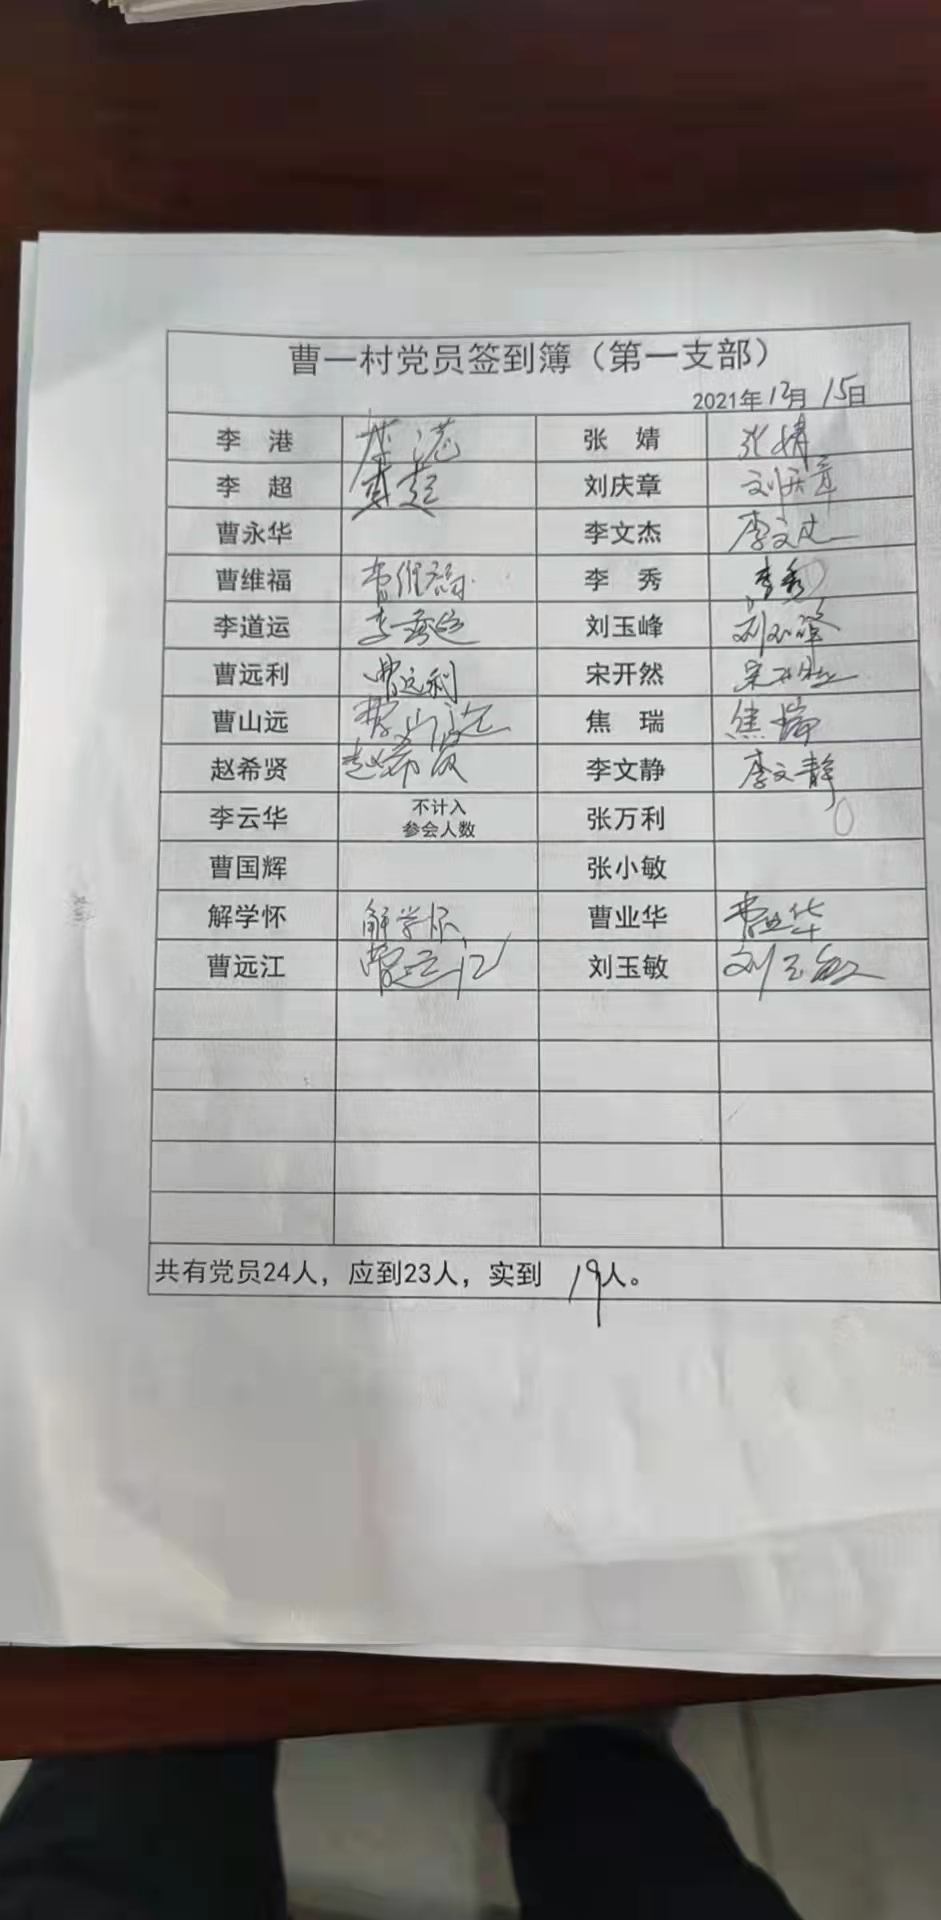 曹一村党员签到簿（第一支部）
2021年12月15日
李 港 李港 张 婧 张婧
李 超 李超 刘庆章 刘庆章
曹永华 李文杰 李文杰
曹维福 曹维福 李 秀 李秀
李道运 李道运 刘玉峰 刘玉峰
曹远利 曹远利 宋开然 宋开然
曹山远 曹山远 焦 瑞 焦瑞
赵希贤 赵希贤 李文静 李文静
李云华 不计入 张万利
参会人数
曹国辉 张小敏
解学怀 解学怀 曹业华 曹业华
曹远江 曹远江 刘玉敏 刘玉敏
共有党员24人，应到23人，实到 19人。